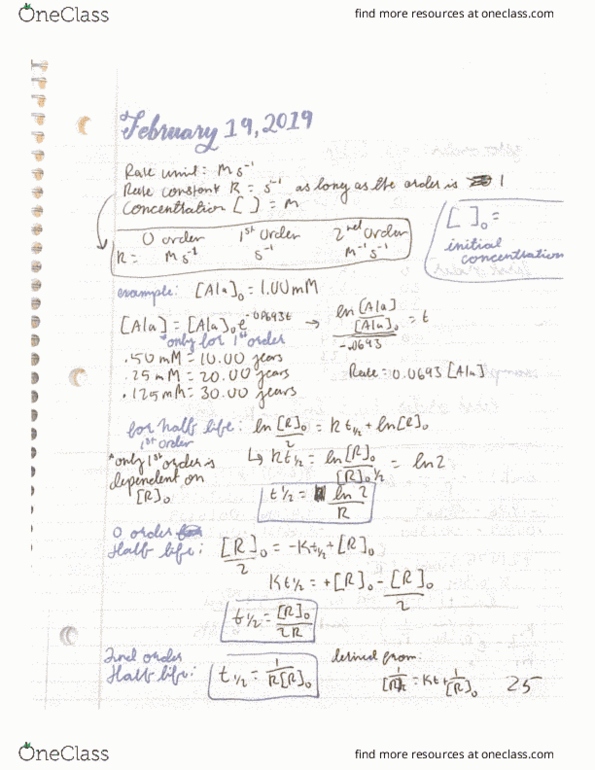 OneClass
find more resources at oneclass.com
February 19, 2019
Rate unit: M s⁻¹
Rate constant K = s⁻¹ as long as the order is 1
Concentration [ ] = M
0 order 1st Order 2nd Order
K = M s⁻¹ s⁻¹ M⁻¹ s⁻¹
[ ]₀ =
initial
concentration
example: [Ala]₀ = 1.00 mM
[Ala] = [Ala]₀ e^-0.0693t → ln [Ala]/[Ala]₀ / -.0693 = t
*only for 1st order
.50 mM = 10.00 years
.25 mM = 20.00 years
.125 mM = 30.00 years
Rate = 0.0693 [Ala]
for half life: ln [R]₀/2 = Kt½ + ln[R]₀
1st order
↳ Kt½ = ln [R]₀/[R]₀½ = ln2
*only 1st order is
dependent on
[R]₀
t½ = ln 2/K
0 order
Half life: [R]₀/2 = -Kt½ + [R]₀
Kt½ = +[R]₀ - [R]₀/2
t½ = [R]₀/2K
2nd order
Half life: t½ = 1/K[R]₀
derived from:
= Kt + 1/[R]₀
25
OneClass
find more resources at oneclass.com